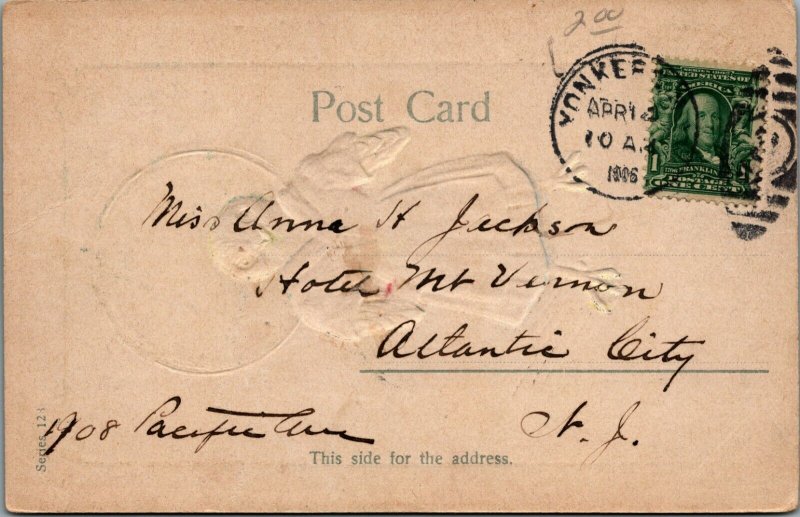 2 00
Post Card
YONKER
APR 12
10 A
1906
SERIES 1902
UNITED STATES OF
AMERICA
1
FRANKLIN
ONE CENT
Miss Anna H Jackson
Hotel Mt Vernon
Atlantic City
1908 Pacific Ave
N. J.
This side for the address.
Series 123